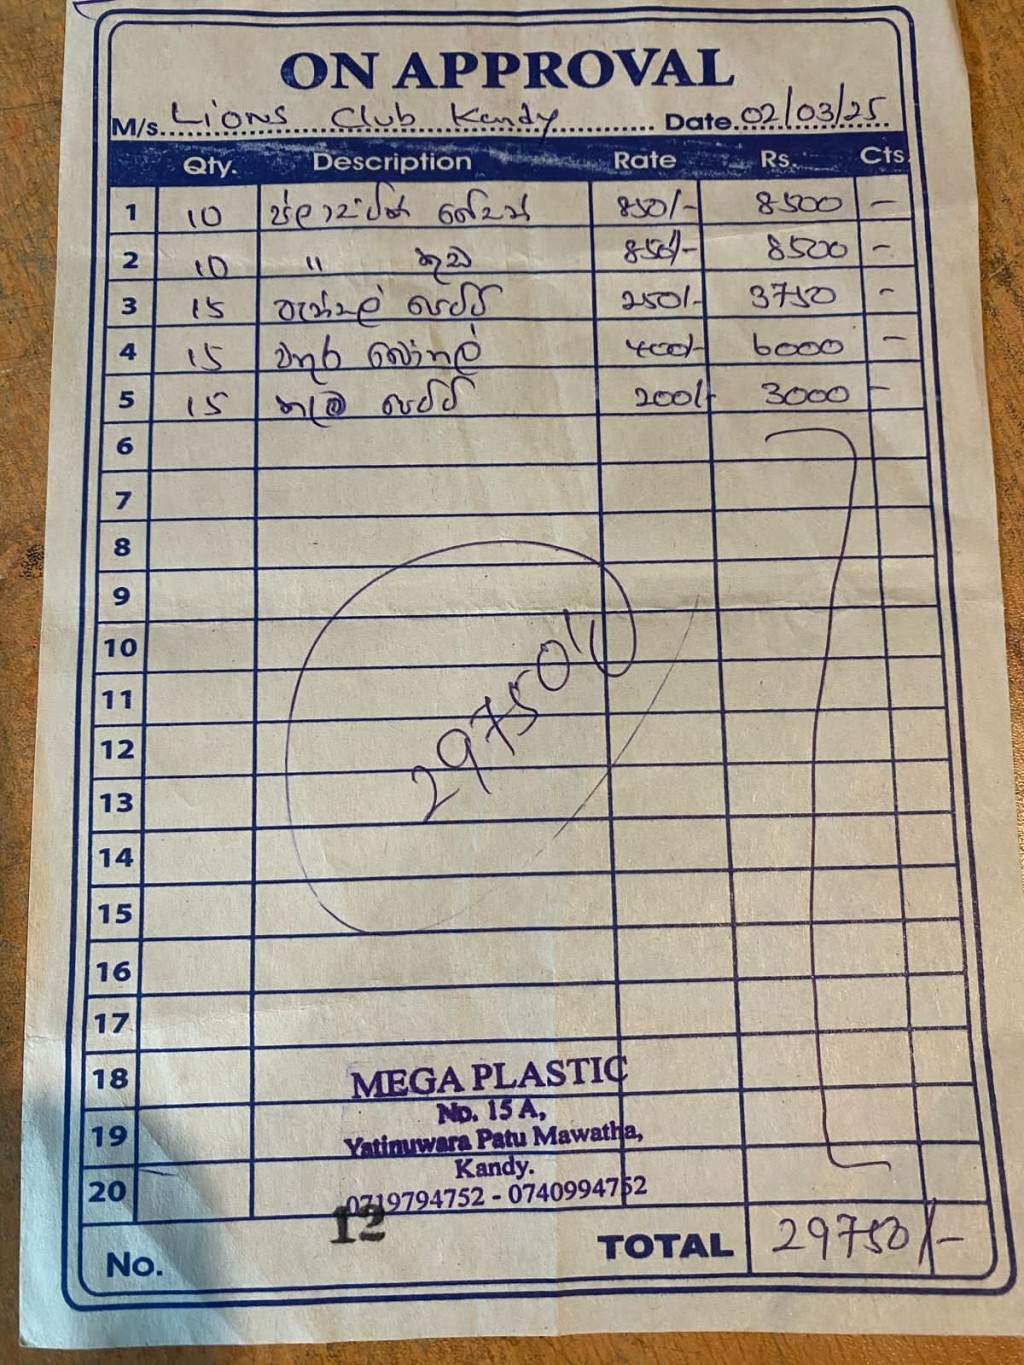 ON APPROVAL
M/s. Lions Club Kandy Date 02/03/25
Qty. Description Rate Rs. Cts.
1 10 850/- 8500 -
2 10 " කුඩ 850/- 8500 -
3 15 පෙට්ටි 250/- 3750 -
4 15 වතුර බෝතල් 400/- 6000 -
5 15 කෑම පෙට්ටි 200/- 3000 -
6
7
8
9
10
11
12
13
14
15
16
17
18
19
20
29750/-
MEGA PLASTIC
No. 15 A,
Yatinuwara Patu Mawatha,
Kandy.
0719794752 - 0740994752
No. 12 TOTAL 29750/-